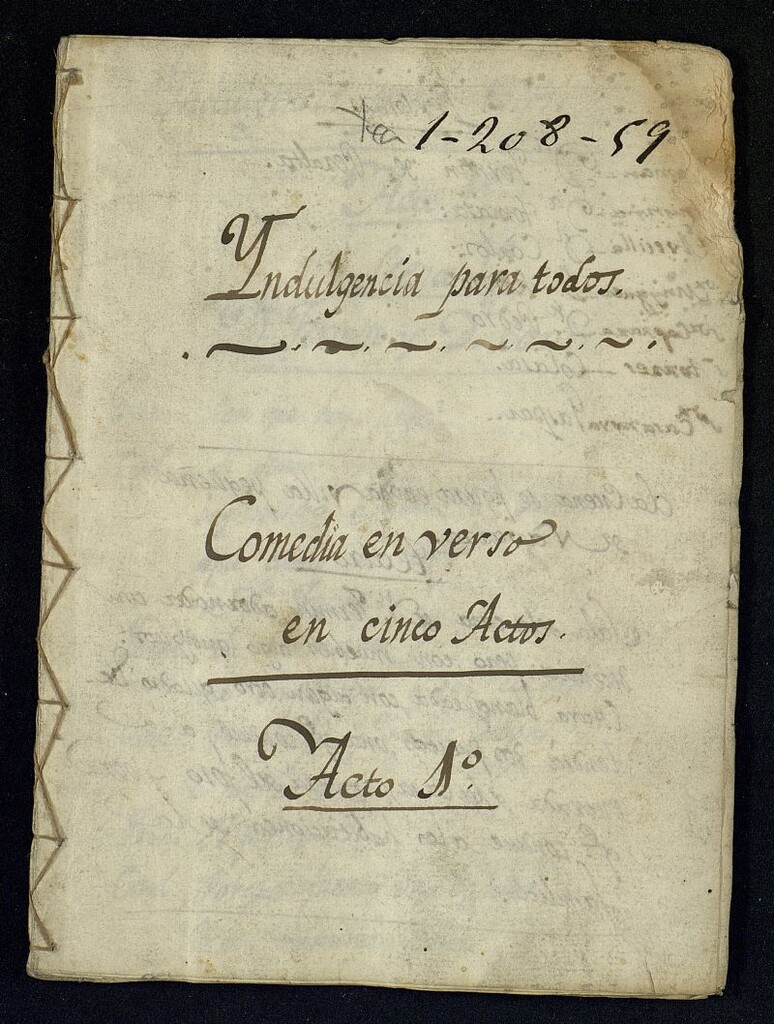 Tea 1-208-59
Yndulgencia para todos.
Comedia en verso
en cinco Actos.
Acto 1º